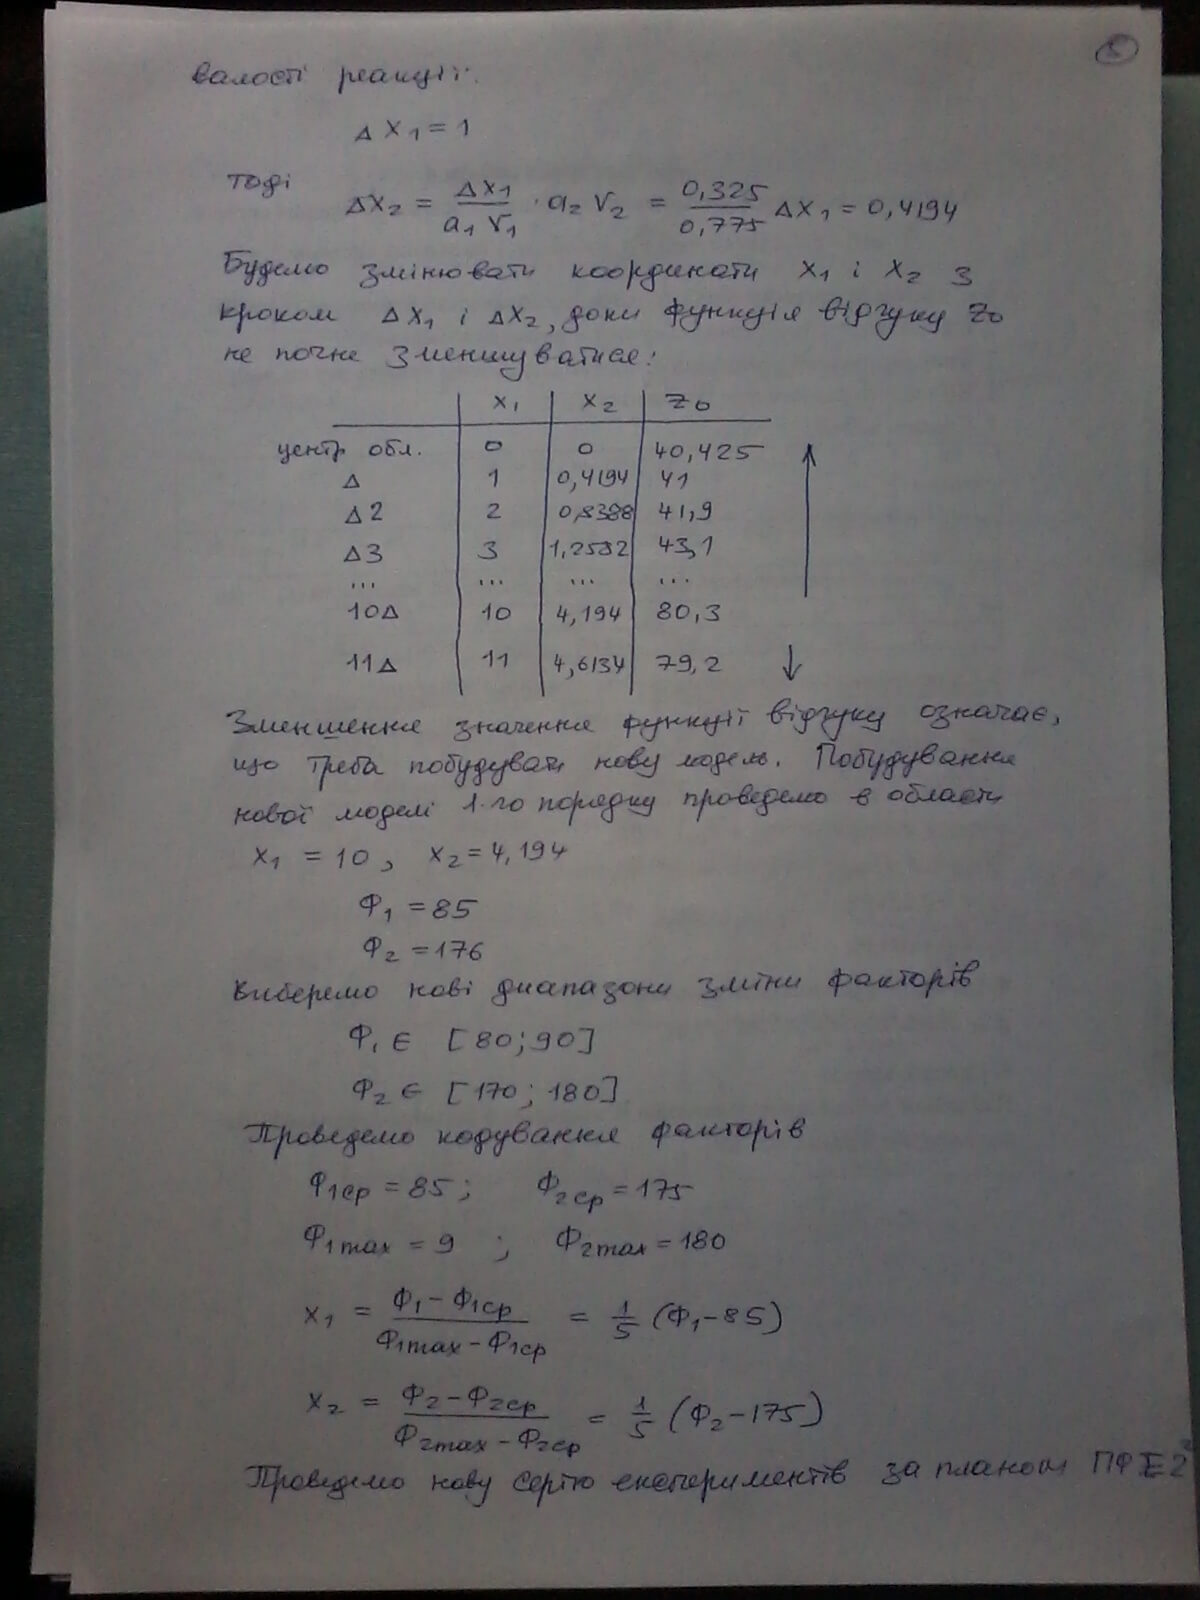 5
валості реакції.
Δ X₁ = 1
тоді
ΔX₂ = ΔX₁ / (a₁ r₁) · a₂ r₂ = 0,325 / 0,775 ΔX₁ = 0,4194
Будемо змінювати координати X₁ і X₂ з
кроком ΔX₁ і ΔX₂, доки функція відгуку Z₀
не почне зменшуватися:
X₁ X₂ Z₀
центр обл. 0 0 40,425 ↑
Δ 1 0,4194 41
Δ2 2 0,8388 41,9
Δ3 3 1,2582 43,1
... ... ... ...
10Δ 10 4,194 80,3
11Δ 11 4,6134 79,2 ↓
Зменшення значення функції відгуку означає,
що треба побудувати нову модель. Побудування
нової моделі 1-го порядку проведемо в области
X₁ = 10, X₂ = 4,194
Ф₁ = 85
Ф₂ = 176
Виберемо нові диапазони зміни факторів
Ф₁ ∈ [80; 90]
Ф₂ ∈ [170; 180]
Проведемо кодування факторів
Ф₁ср = 85; Ф₂ср = 175
Ф₁max = 9 ; Ф₂max = 180
X₁ = (Ф₁ - Ф₁ср) / (Ф₁max - Ф₁ср) = 1/5 (Ф₁ - 85)
X₂ = (Ф₂ - Ф₂ср) / (Ф₂max - Ф₂ср) = 1/5 (Ф₂ - 175)
Проведемо нову серію експериментів за планом ПФЕ 2²